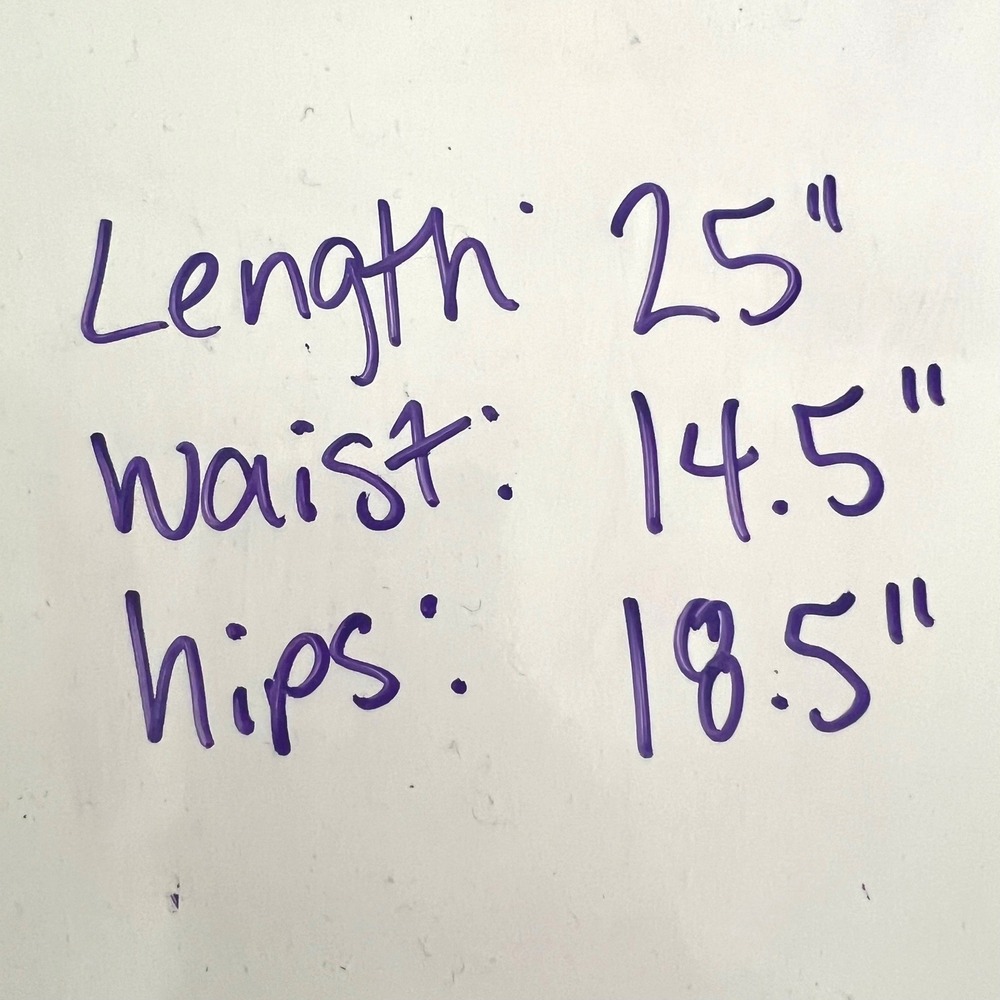 Length: 25"
waist: 14.5"
hips: 18.5"